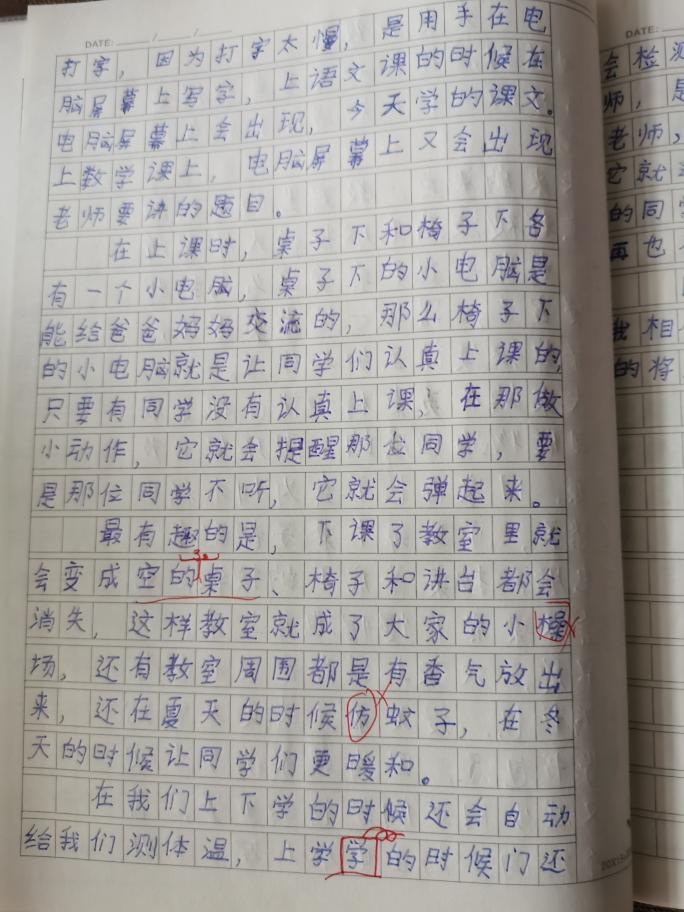 DATE: / /
打字，因为打字太慢，是用手在电
脑屏幕上写字，上语文课的时候在
电脑屏幕上会出现，今天学的课文。
上数学课上，电脑屏幕上又会出现
老师要讲的题目。
在上课时，桌子下和椅子下各
有一个小电脑，桌子下的小电脑是
能给爸爸妈妈交流的，那么椅子下
的小电脑就是让同学们认真上课的，
只要有同学没有认真上课，在那做
小动作，它就会提醒那位同学，要
是那位同学不听，它就会弹起来。
最有趣的是，下课了教室里就
会变成空的桌子、椅子和讲台都会
消失，这样教室就成了大家的小橾
场，还有教室周围都是有香气放出
来，还在夏天的时候仿蚊子，在冬
天的时候让同学们更暖和。
在我们上下学的时候还会自动
给我们测体温，上学学的时候门还
DATE:
会检测
师，是
老师，
它就
的同
再也
我相
的将
20X15